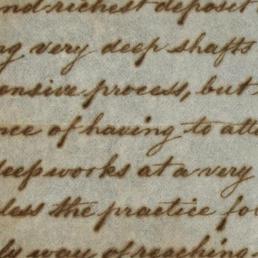 nd richest deposit
ng very deep shafts
ensive process, but
nce of having to atte
deep works at a very
less the practice fo
ly way of reaching